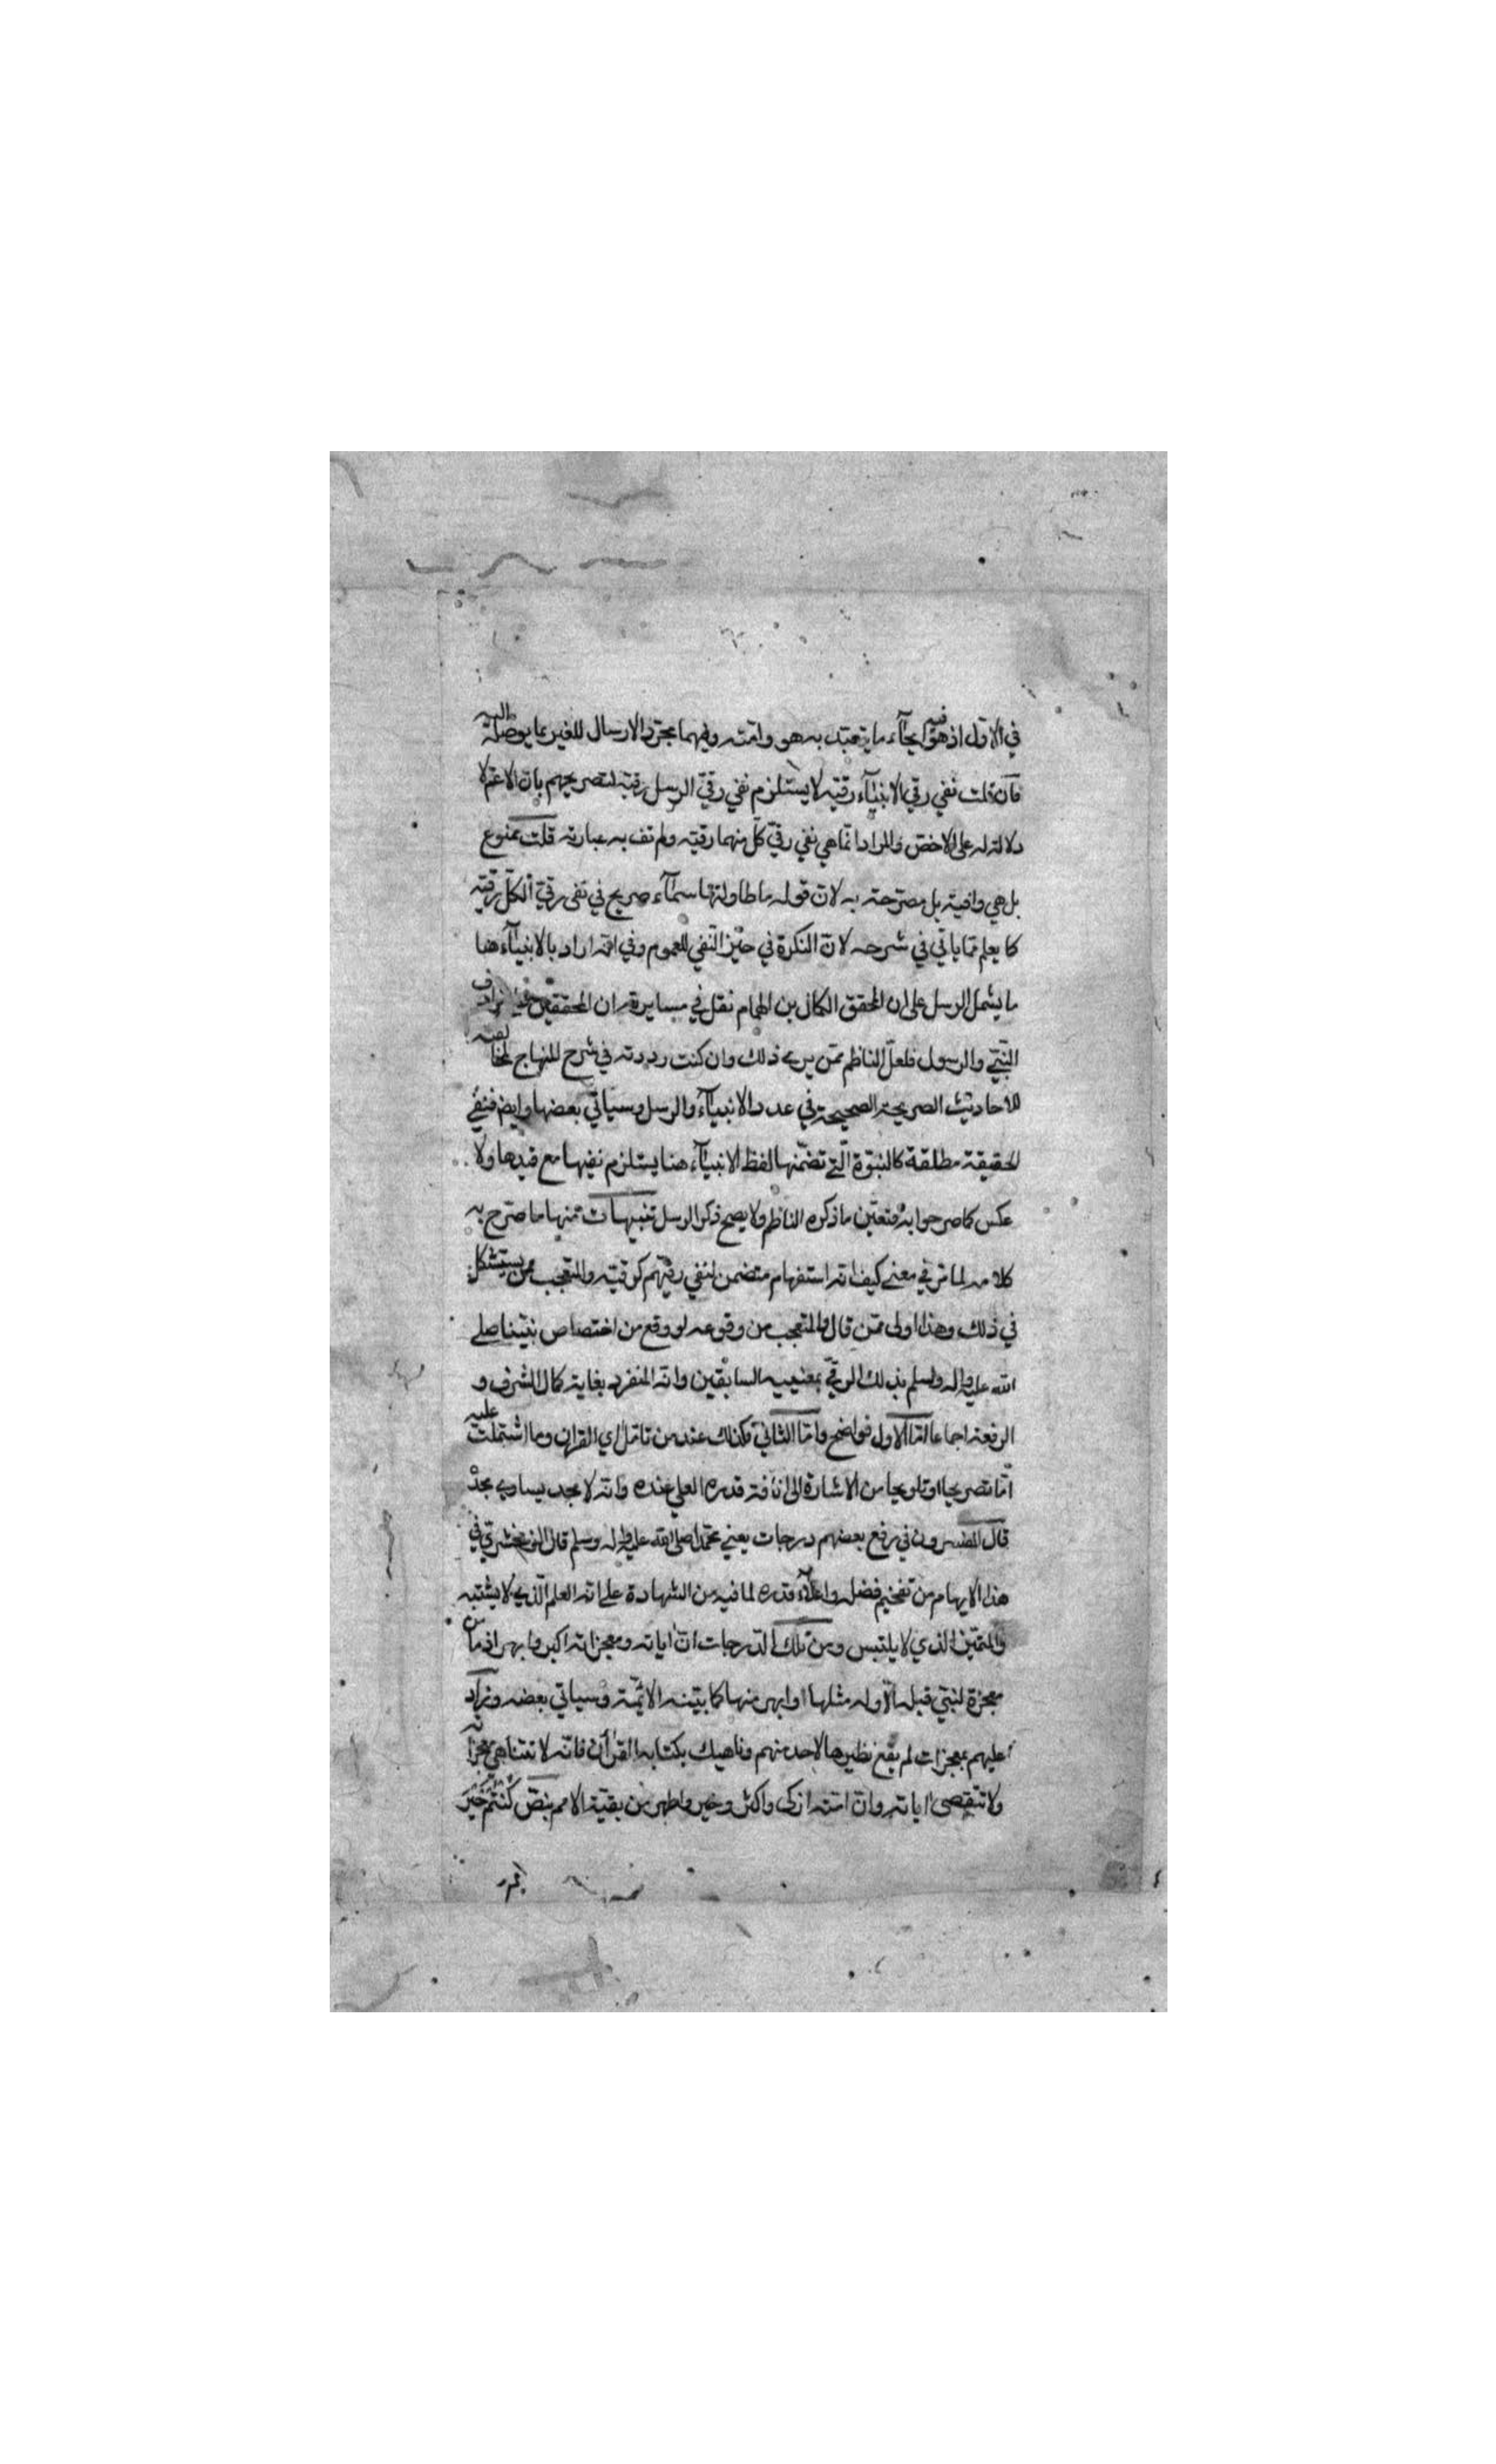 في الاول اذ هو فيه ايحاء ما يتعبد به هو وامته وفيهما مجرد الارسال للغير بما يوصله اليه
فان قلت نفي رقي الانبياء رقيه لا يستلزم نفي رقي الرسل رقيه لتصريحهم بان الاعم لا
دلالة له على الاخص والمراد انما هي نفي رقي كل منهما رقيه ولم تف به عبارته قلت ممنوع
بل هي وافية بل مصرحة به لان قوله ما طاولتها سماء صريح في نفي رقي الكل رقيه
كما يعلم مما ياتي في شرحه لان النكرة في حيز النفي للعموم وفي انه اراد بالانبياء هنا
ما يشمل الرسل على ان المحقق الكمال بن الهمام نقل في مسايرته ان المحققين ترادف
النبي والرسول فلعل الناظم ممن يرى ذلك وان كنت رددته في شرح المنهاج لمخالفته
للاحاديث الصريحة الصحيحة في عدد الانبياء والرسل وسياتي بعضها وايض فنفي
الحقيقة مطلقة كالنبوة التي تضمنها لفظ الانبياء هنا يستلزم نفيها مع قيدها ولا
عكس كما صرحوا به فتعين ما ذكره الناظم ولا يصح ذكر الرسل تنبيهات منها ما صرح به
كلامه لما مر في معنى كيف انه استفهام متضمن لنفي رقيهم كرقيه والتعجب ممن يستشكل
في ذلك وهذا اولى ممن قال والمتعجب من وقوعه لو وقع من اختصاص نبينا صلى
الله عليه واله وسلم بذلك الرقي بمعنييه السابقين وانه المنفرد بغاية كمال الشرف و
الرفعة اجماعا اما الاول فواضح واما الثاني فكذلك عند من تامل اي القران وما اشتملت عليه
اما تصريحا او تلويحا من الاشارة الى انافة قدره العلي عنده وانه لا مجد يساوي مجده
قال المفسرون في ورفع بعضهم درجات يعني محمدا صلى الله عليه واله وسلم قال الزمخشري في
هذا الابهام من تفخيم فضله واعلاء قدره لما فيه من الشهادة على انه العلم الذي لا يشتبه
والمتميز الذي لا يلتبس ومن تلك الدرجات ان اياته ومعجزاته اكبر وابهر اذ ما من
معجزة لنبي قبله الا وله مثلها او ابهر منها كما بينه الائمة وسياتي بعضه وزاد
عليهم بمعجزات لم يقع نظيرها لاحد منهم وناهيك بكتابه القرآن فانه لا تتناهى معجزاته
ولا تتقصى اياته وان امته ازكى واكثر وخير واطهر من بقية الامم بنص كنتم خير